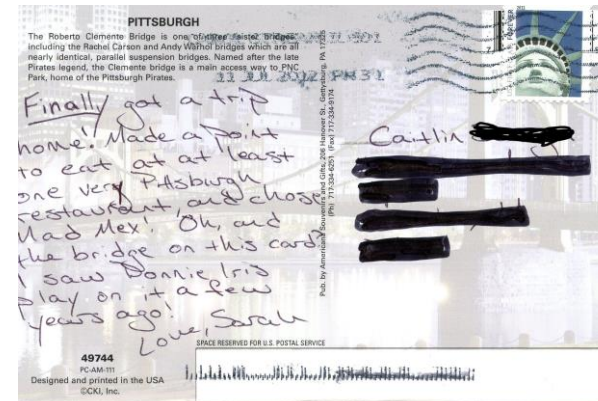 PITTSBURGH
The Roberto Clemente Bridge is one of three "sister bridges,"
including the Rachel Carson and Andy Warhol bridges which are all
nearly identical, parallel suspension bridges. Named after the late
Pirates legend, the Clemente bridge is a main access way to PNC
Park, home of the Pittsburgh Pirates.
11 JUL 2012 PM 3 L
FOREVER
Finally got a trip
home! Made a point
to eat at at least
one very Pittsburgh
restaurant, and chose
Mad Mex! Oh, and
the bridge on this card?
I saw Donnie Iris
play on it a few
years ago!
Love, Sarah
Pub. by Americana Souvenirs and Gifts, 206 Hanover St., Gettysburg, PA 17325
(Ph) 717-334-6251, (Fax) 717-334-9174
Caitlin
SPACE RESERVED FOR U.S. POSTAL SERVICE
49744
PC-AM-111
Designed and printed in the USA
©CKI, Inc.